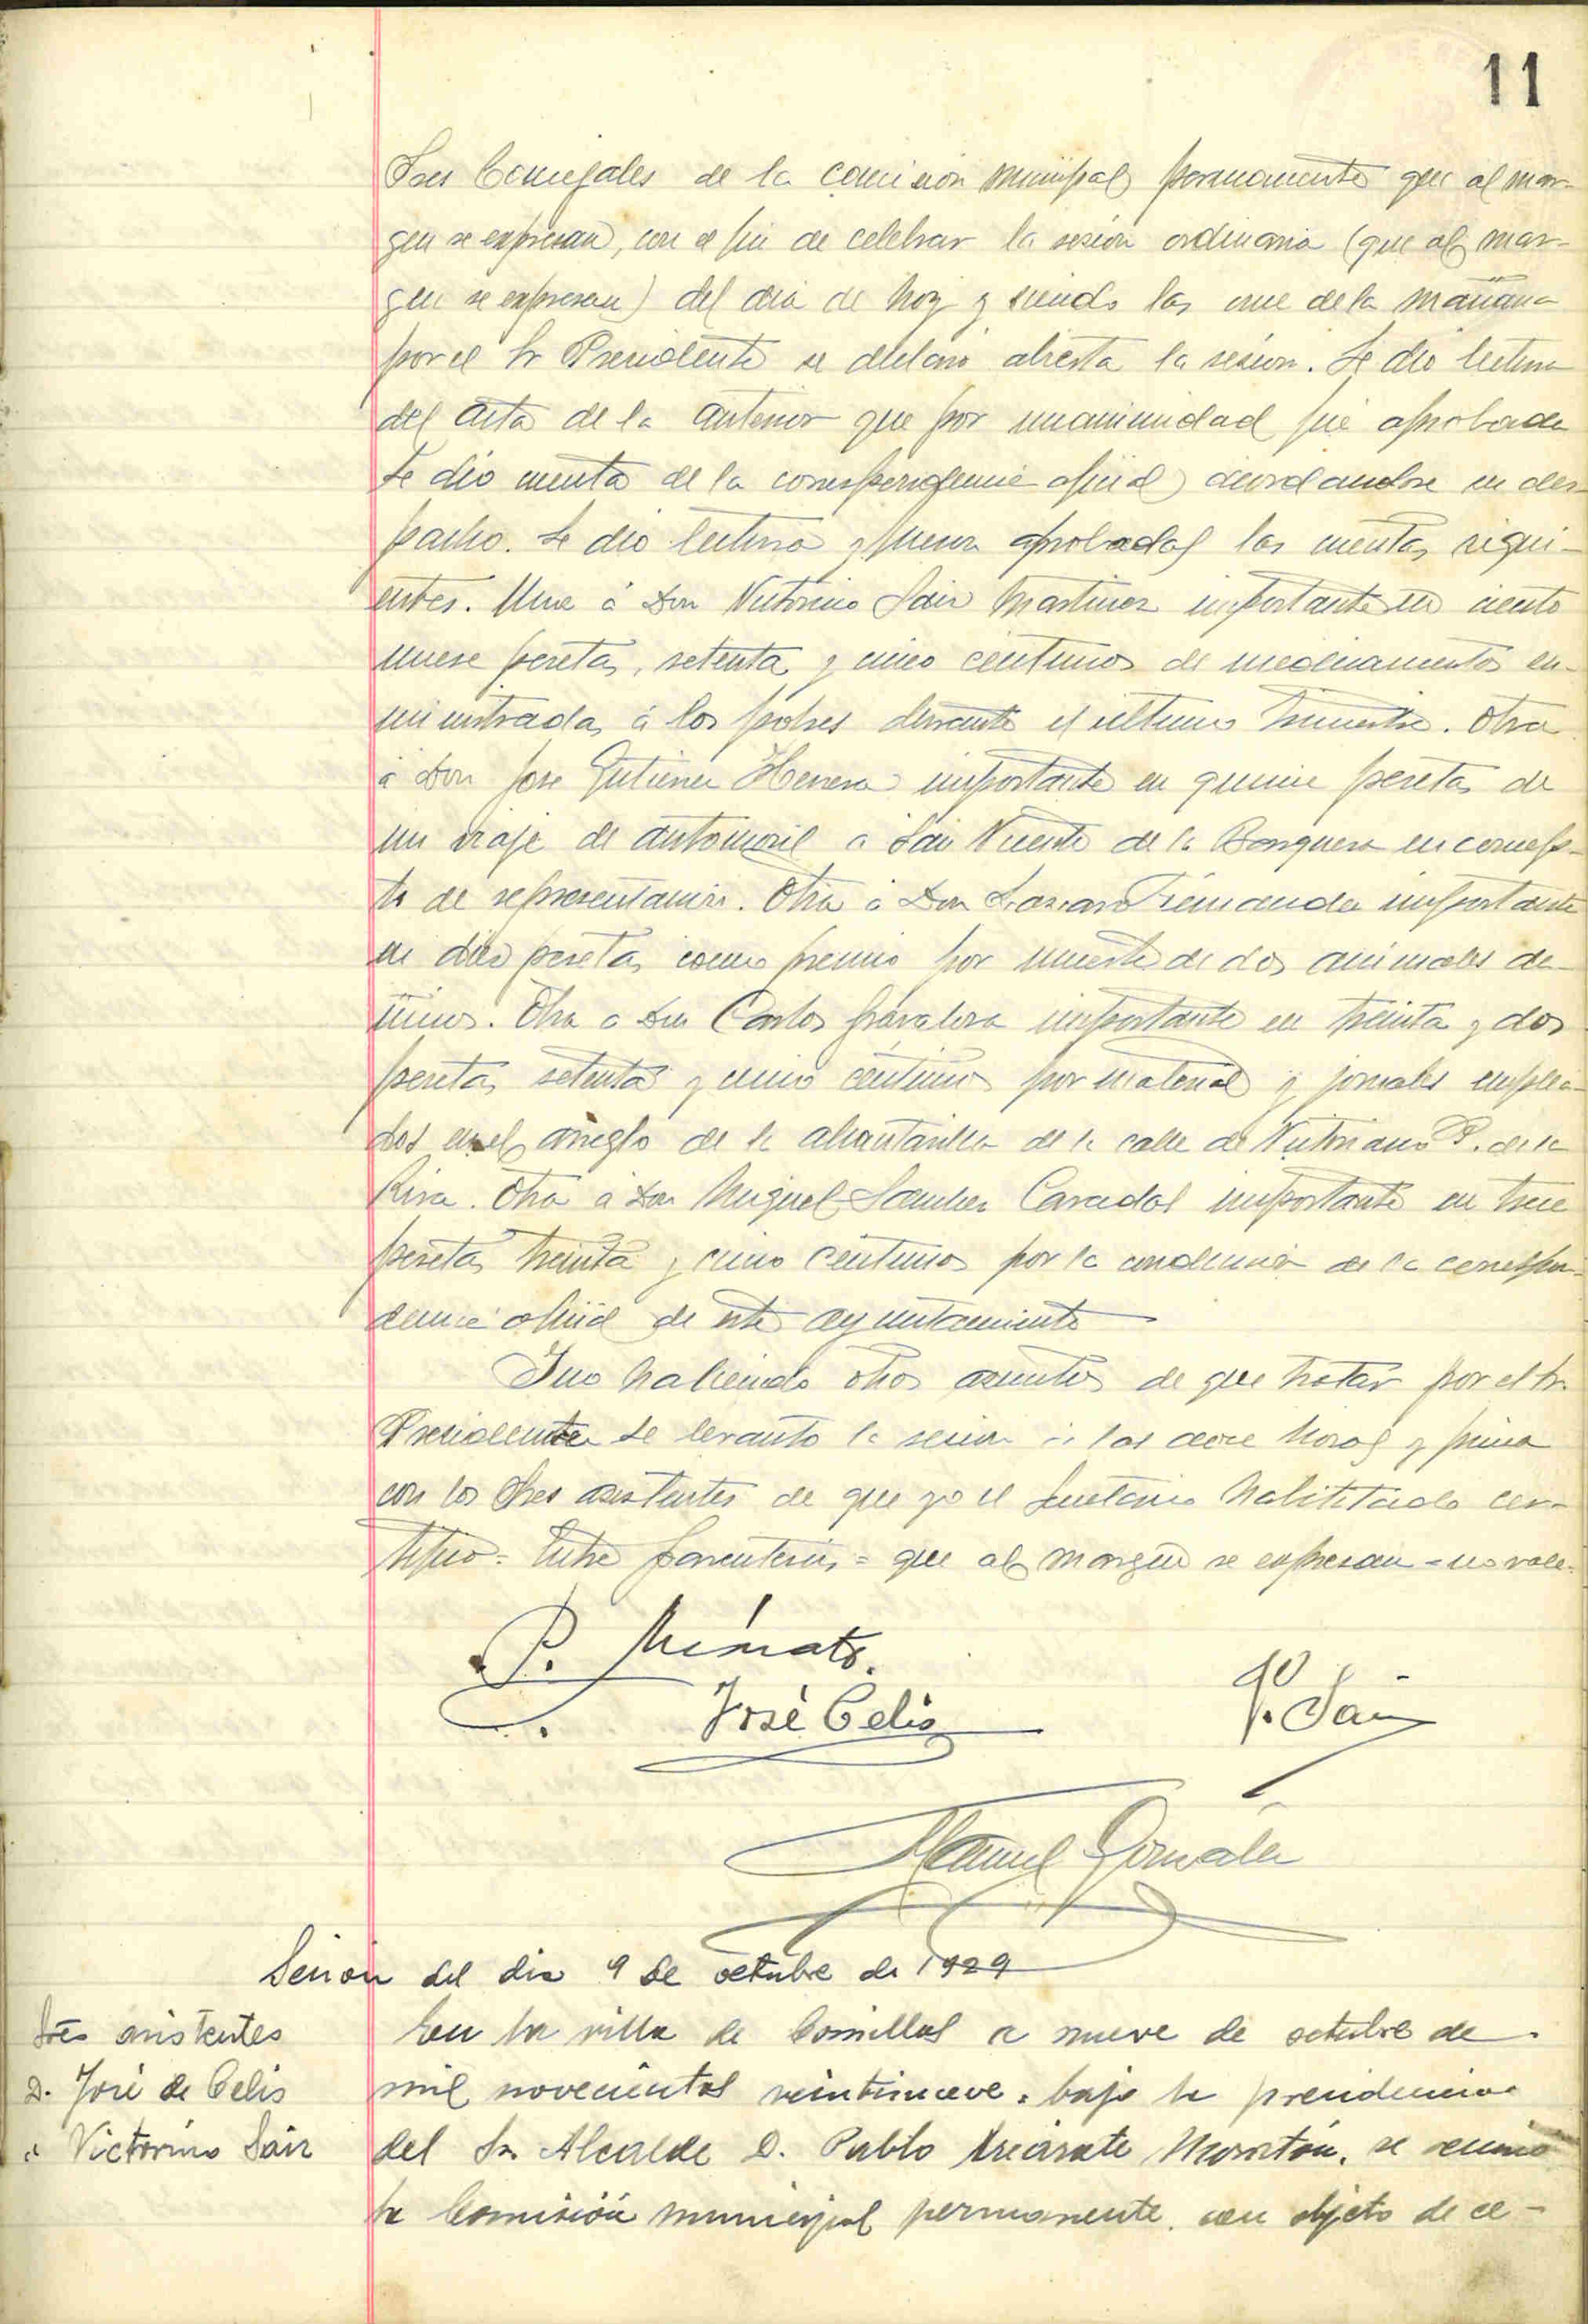 11
Sres Concejales de la comision municipal permanente que al mar-
gen se expresan, con el fin de celebrar la sesión ordinaria (que al mar-
gen se expresan) del dia de hoy y siendo las once de la mañana
por el Sr Presidente se declaró abierta la sesion. Se dió lectura
del acta de la anterior que por unanimidad fué aprobada
Se dió cuenta de la correspondencia oficial acordandose su des-
pacho. Se dió lectura y fueron aprobadas las cuentas sigui-
entes. Una á Don Victorino Sainz Martinez importante en ciento
nueve pesetas, setenta y cinco centimos de medicamentos su-
ministrados á los pobres durante el ultimo trimestre. Otra
á Don Jose Gutierrez Herrera importante en quince pesetas de
un viaje de automovil a San Vicente de la Barquera en concep-
to de representación. Otra á Don Fernandez importante
en diez pesetas como premio por muerte de dos animales da-
ñinos. Otra a Don Carlos importante en treinta y dos
pesetas setenta y cinco centimos por material y jornales emplea-
dos en el arreglo de la alcantarilla de la calle de Victoriano P. de la
Riva. Otra á Don Miguel Sanchez importante en trece
pesetas treinta y cinco centimos por la conducción de la correspon-
dencia oficial de este ayuntamiento
Y no habiendo otros asuntos de que tratar por el Sr.
Presidente se levantó la sesion á las doce horas y firma
con los Sres asistentes de que yo el Secretario habilitado cer-
tifico = Entre parentesis = que al margen se expresan = no vale.
José Celis
V. Sainz
Manuel González
Sesion del dia 9 de octubre de 1929
Sres asistentes
D. José de Celis
" Victorino Sainz
En la villa de Comillas a nueve de octubre de
mil novecientos veintinueve, bajo la presidencia
del Sr. Alcalde D. Pablo Morantón, se reunió
la Comisión municipal permanente, con objeto de ce-